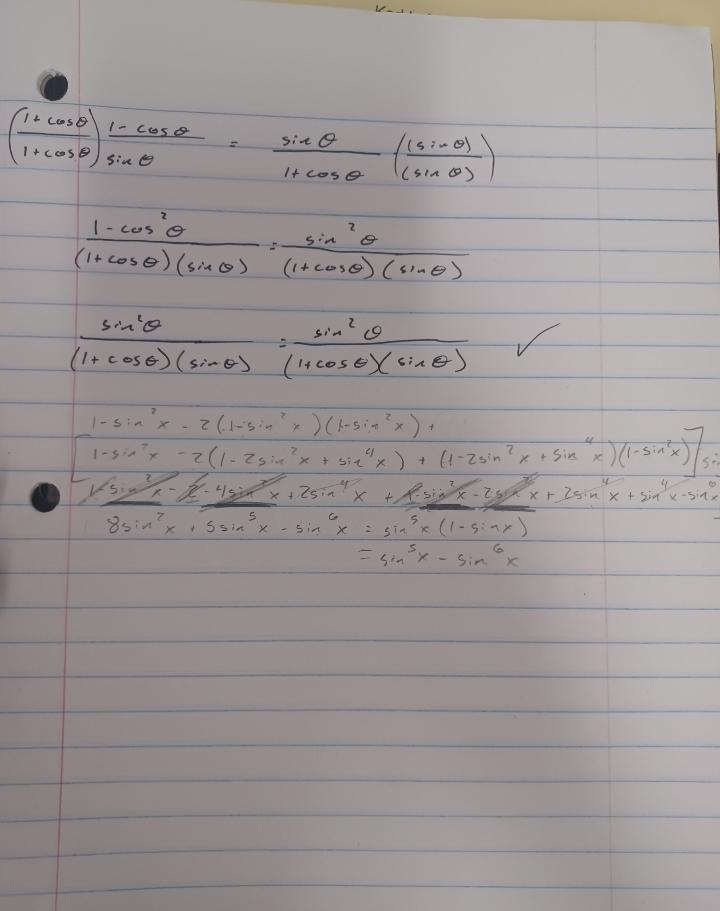 (1+cosθ / 1+cosθ) 1-cosθ / sinθ = sinθ / 1+cosθ ((sinθ) / (sinθ))
1-cos²θ / (1+cosθ)(sinθ) = sin²θ / (1+cosθ)(sinθ)
sin²θ / (1+cosθ)(sinθ) = sin²θ / (1+cosθ)(sinθ) ✓
1-sin²x - 2(1-sin²x)(1-sin²x) +
[1-sin²x - 2(1-2sin²x + sin⁴x) + (1-2sin²x + sin⁴x)(1-sin²x)]
1-sin²x - 2 - 4sin²x + 2sin⁴x + 1-sin²x - 2sin²x + 2sin⁴x + sin⁴x - sin⁶x
8sin²x + 5sin⁵x - sin⁶x = sin⁵x (1-sinx)
= sin⁵x - sin⁶x